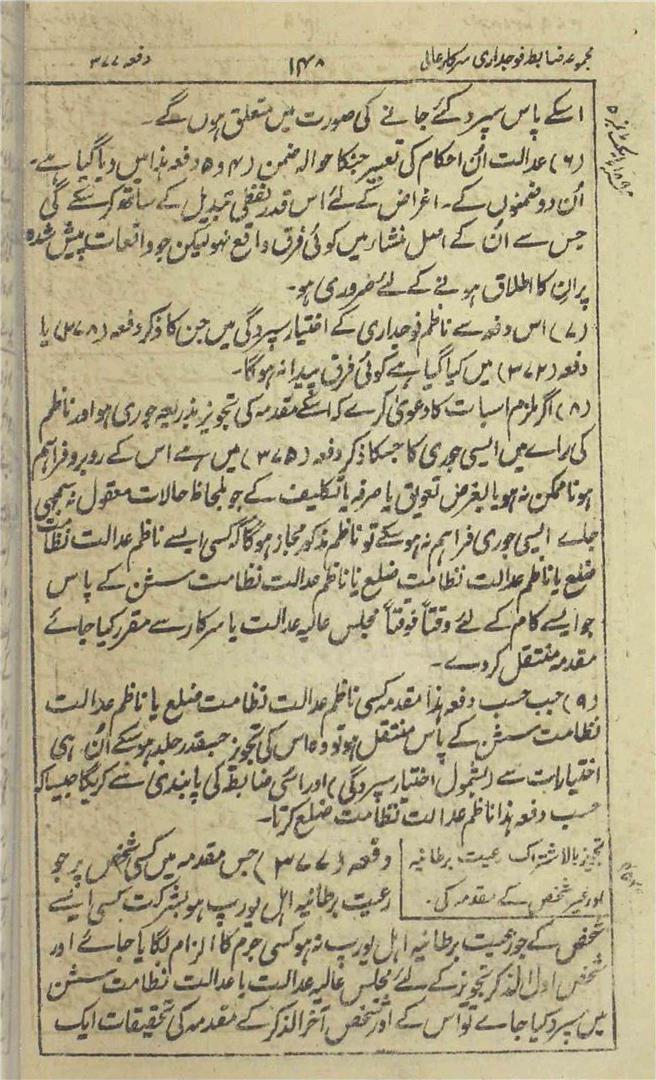 مجموعہ ضابطہ فوجداری سرکار عالی
۱۴۸
دفعہ ۳۷۷
اسکے پاس سپرد کئے جانے کی صورت میں متعلق ہوں گے۔
(۶) عدالت اُن احکام کی تعبیر جنکا حوالہ ضمن (۴ و ۵) دفعہ ہذا میں دیا گیا ہے۔
اُن دو ضمنوں کے۔ اغراض کے لئے اس قدر لفظی تبدیل کے ساتھ کر سکے گی
جس سے اُن کے اصل منشار میں کوئی فرق واقع نہو لیکن جو واقعات پیش شدہ
پر اِن کا اطلاق ہونے کے لئے ضروری ہو۔
(۷) اس دفعہ سے ناظم فوجداری کے اختیار سپردگی میں جن کا ذکر دفعہ (۳۷۸) یا
دفعہ (۳۷۲) میں کیا گیا ہے کوئی فرق پیدا نہ ہوگا۔
(۸) اگر ملزم اسبات کا دعویٰ کرے کہ اسکے مقدمہ کی تجویز بذریعہ جوری ہو اور ناظم
کی راے میں ایسی جوری کا جسکا ذکر دفعہ (۳۷۵) میں ہے اس کے روبرو فراہم
ہونا ممکن نہ ہو یا بغیر تعویق یا صرفہ یا تکلیف کے جو بلحاظ حالات معقول نہ سمجھی
جاے ایسی جوری فراہم نہ ہو سکے تو ناظم مذکور مجاز ہوگا کہ کسی ایسے ناظم عدالت نظامت
ضلع یا ناظم عدالت نظامت ضلع یا ناظم عدالت نظامت سشن کے پاس
جو ایسے کام کے لئے وقتاً فوقتاً مجلس عالیہ عدالت یا سرکار سے مقرر کیا جائے
مقدمہ منتقل کردے۔
(۹) جب حسب دفعہ ہذا مقدمہ کسی ناظم عدالت نظامت ضلع یا ناظم عدالت
نظامت سشن کے پاس منتقل ہو تو وہ اس کی تجویز جسقدر جلد ہو سکے اُن ہی
اختیارات سے (بشمول اختیار سپردگی) اور اسی ضابطہ کی پابندی سے کریگا جیسا کہ
حسب دفعہ ہذا ناظم عدالت نظامت ضلع کرتا۔
تجویز بالاشتراک رعیت برطانیہ
اور غیر شخص کے مقدمہ کی۔
دفعہ (۳۷۷) جس مقدمہ میں کسی شخص پر جو
رعیت برطانیہ اہل یورپ ہو بشرکت کسی ایسے
شخص کے جو رعیت برطانیہ اہل یورپ نہ ہو کسی جرم کا الزام لگایا جائے اور
شخص اول الذکر تجویز کے لئے مجلس عالیہ عدالت یا عدالت نظامت سشن
میں سپرد کیا جاے تو اس کے اور شخص آخر الذکر کے مقدمہ کی تحقیقات ایک